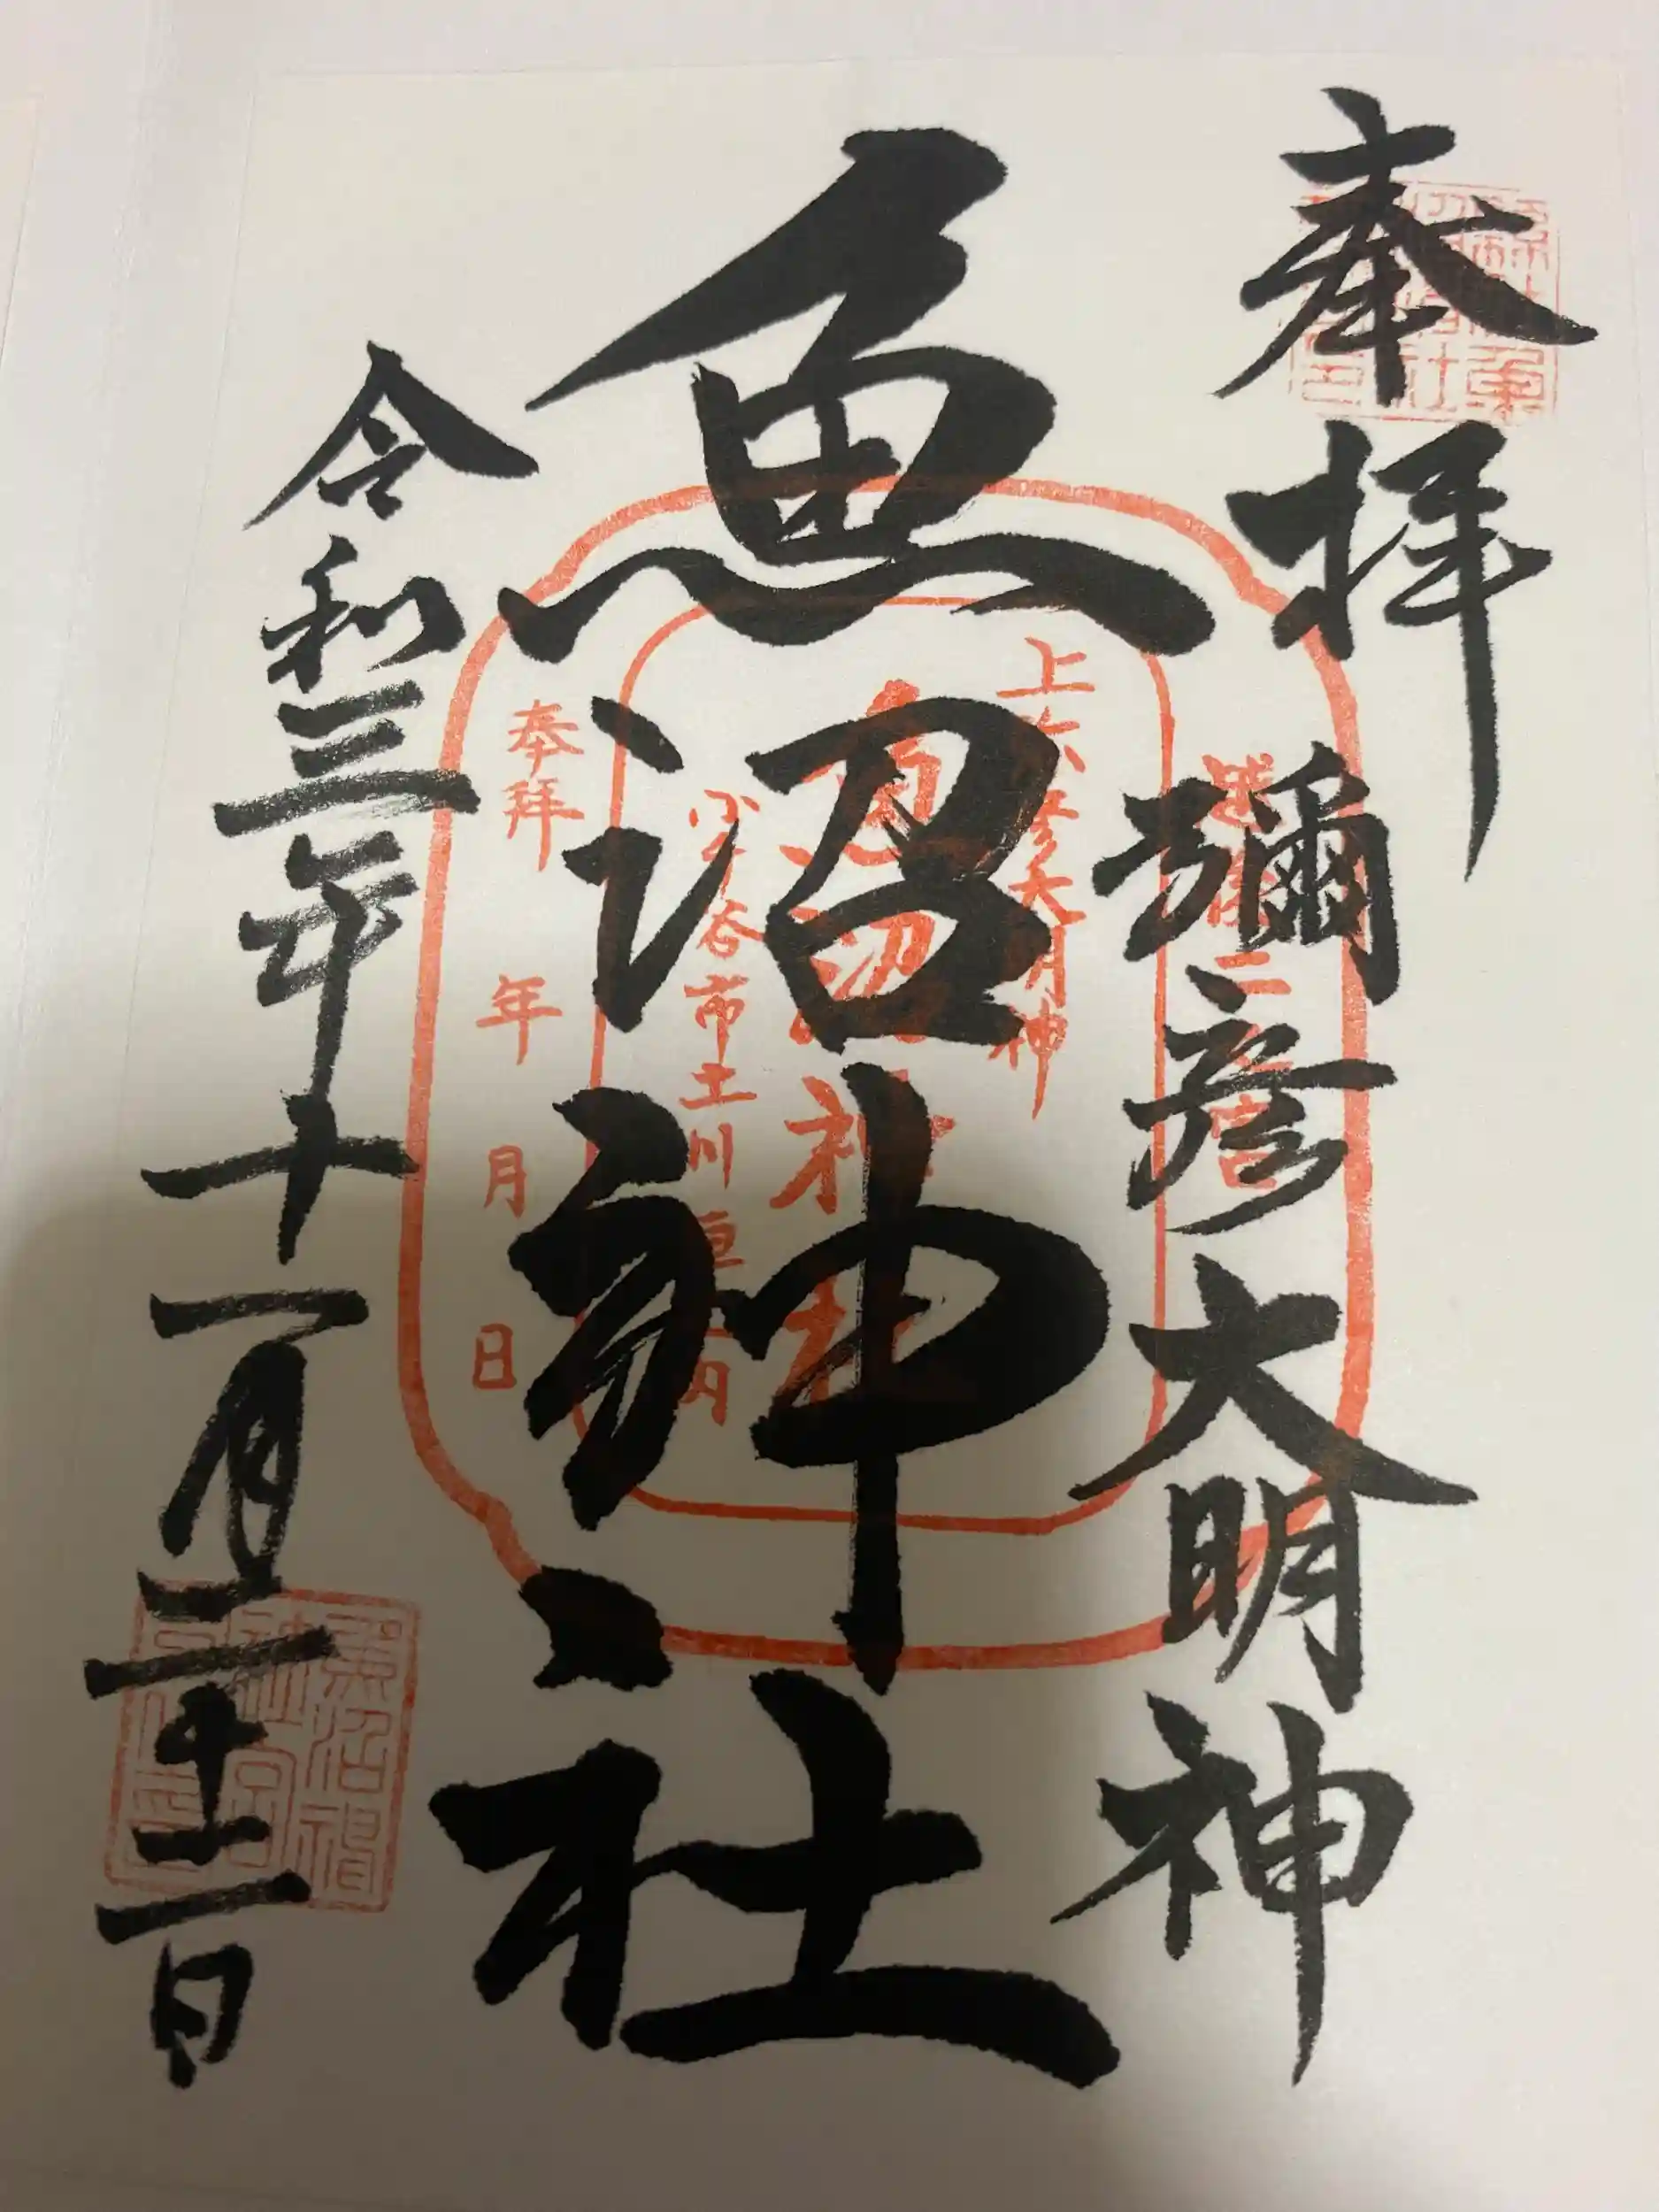 奉拝
彌彦大明神
魚沼神社
令和三年十一月二十二日
越後二宮
上弥彦大明神
魚沼神社
小千谷市土川
奉拝 年 月 日